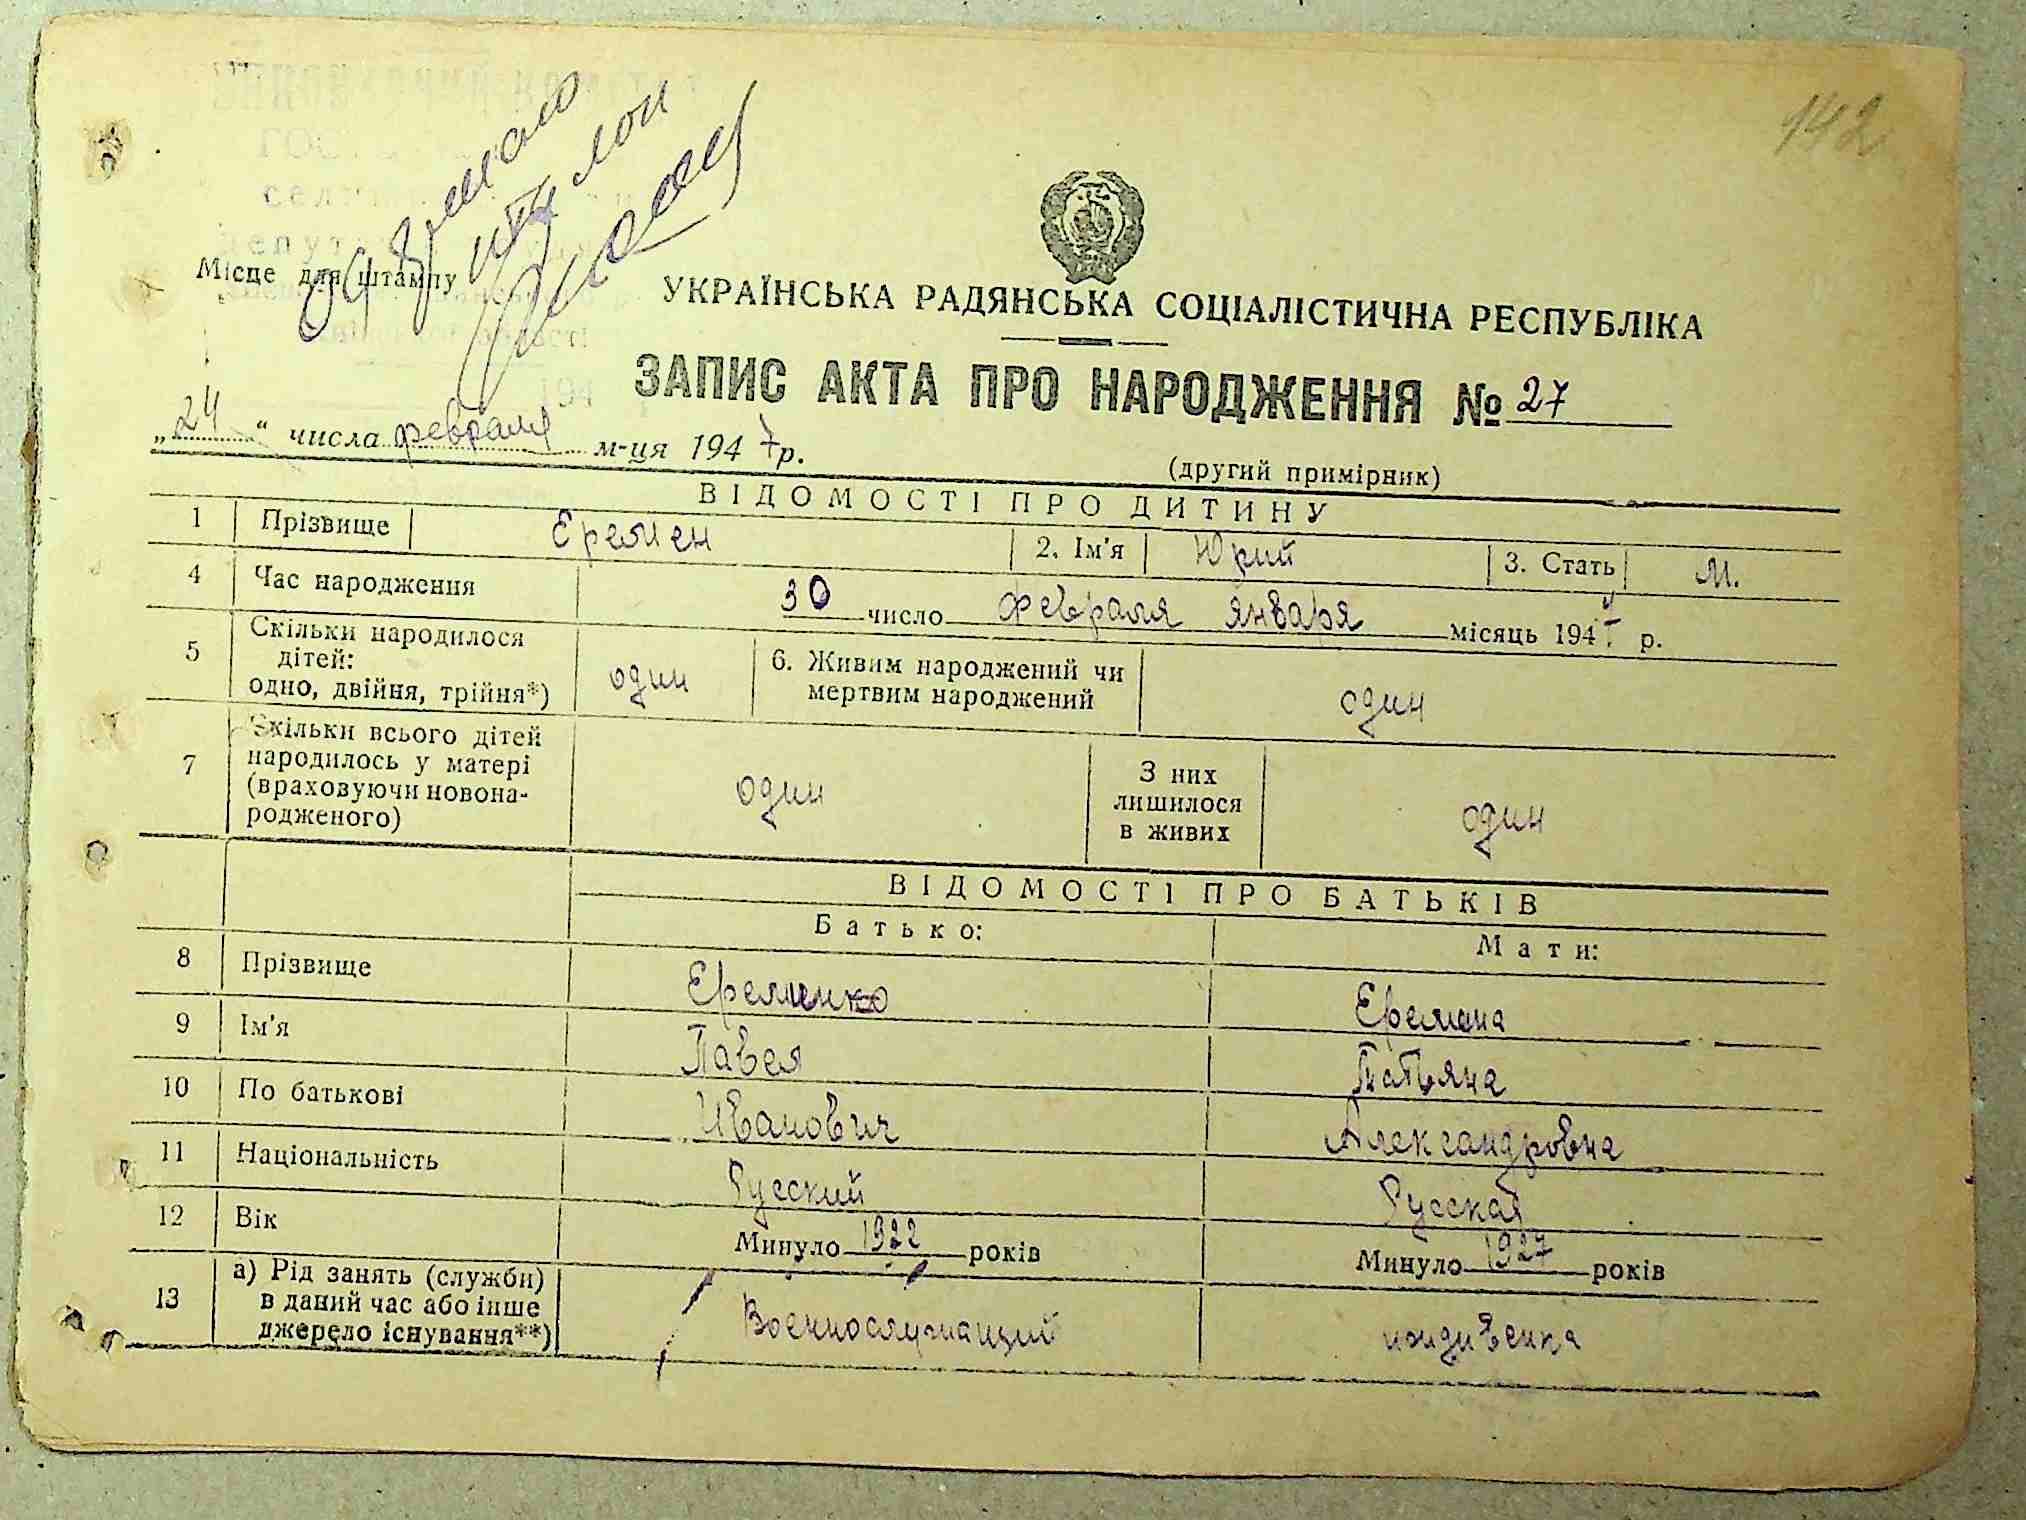 142
Місце для штампу
УКРАЇНСЬКА РАДЯНСЬКА СОЦІАЛІСТИЧНА РЕСПУБЛІКА
ЗАПИС АКТА ПРО НАРОДЖЕННЯ № 27
„24“ числа февраля м-ця 1947 р.
(другий примірник)
ВІДОМОСТІ ПРО ДИТИНУ
1 Прізвище Еремен 2. Ім'я Юрий 3. Стать М.
4 Час народження 30 число февраля января місяць 194 р.
5 Скільки народилося
дітей:
одно, двійня, трійня*) один 6. Живим народжений чи
мертвим народжений один
7 Скільки всього дітей
народилось у матері
(враховуючи новона-
родженого) один З них
лишилося
в живих один
ВІДОМОСТІ ПРО БАТЬКІВ
Батько: Мати:
8 Прізвище Еременко Еремена
9 Ім'я Павел Татьяна
10 По батькові Иванович Александровна
11 Національність Русский Русская
12 Вік Минуло 1922 років Минуло 1927 років
13 а) Рід занять (служби)
в даний час або інше
джерело існування**) Военнослужащий иждивенка